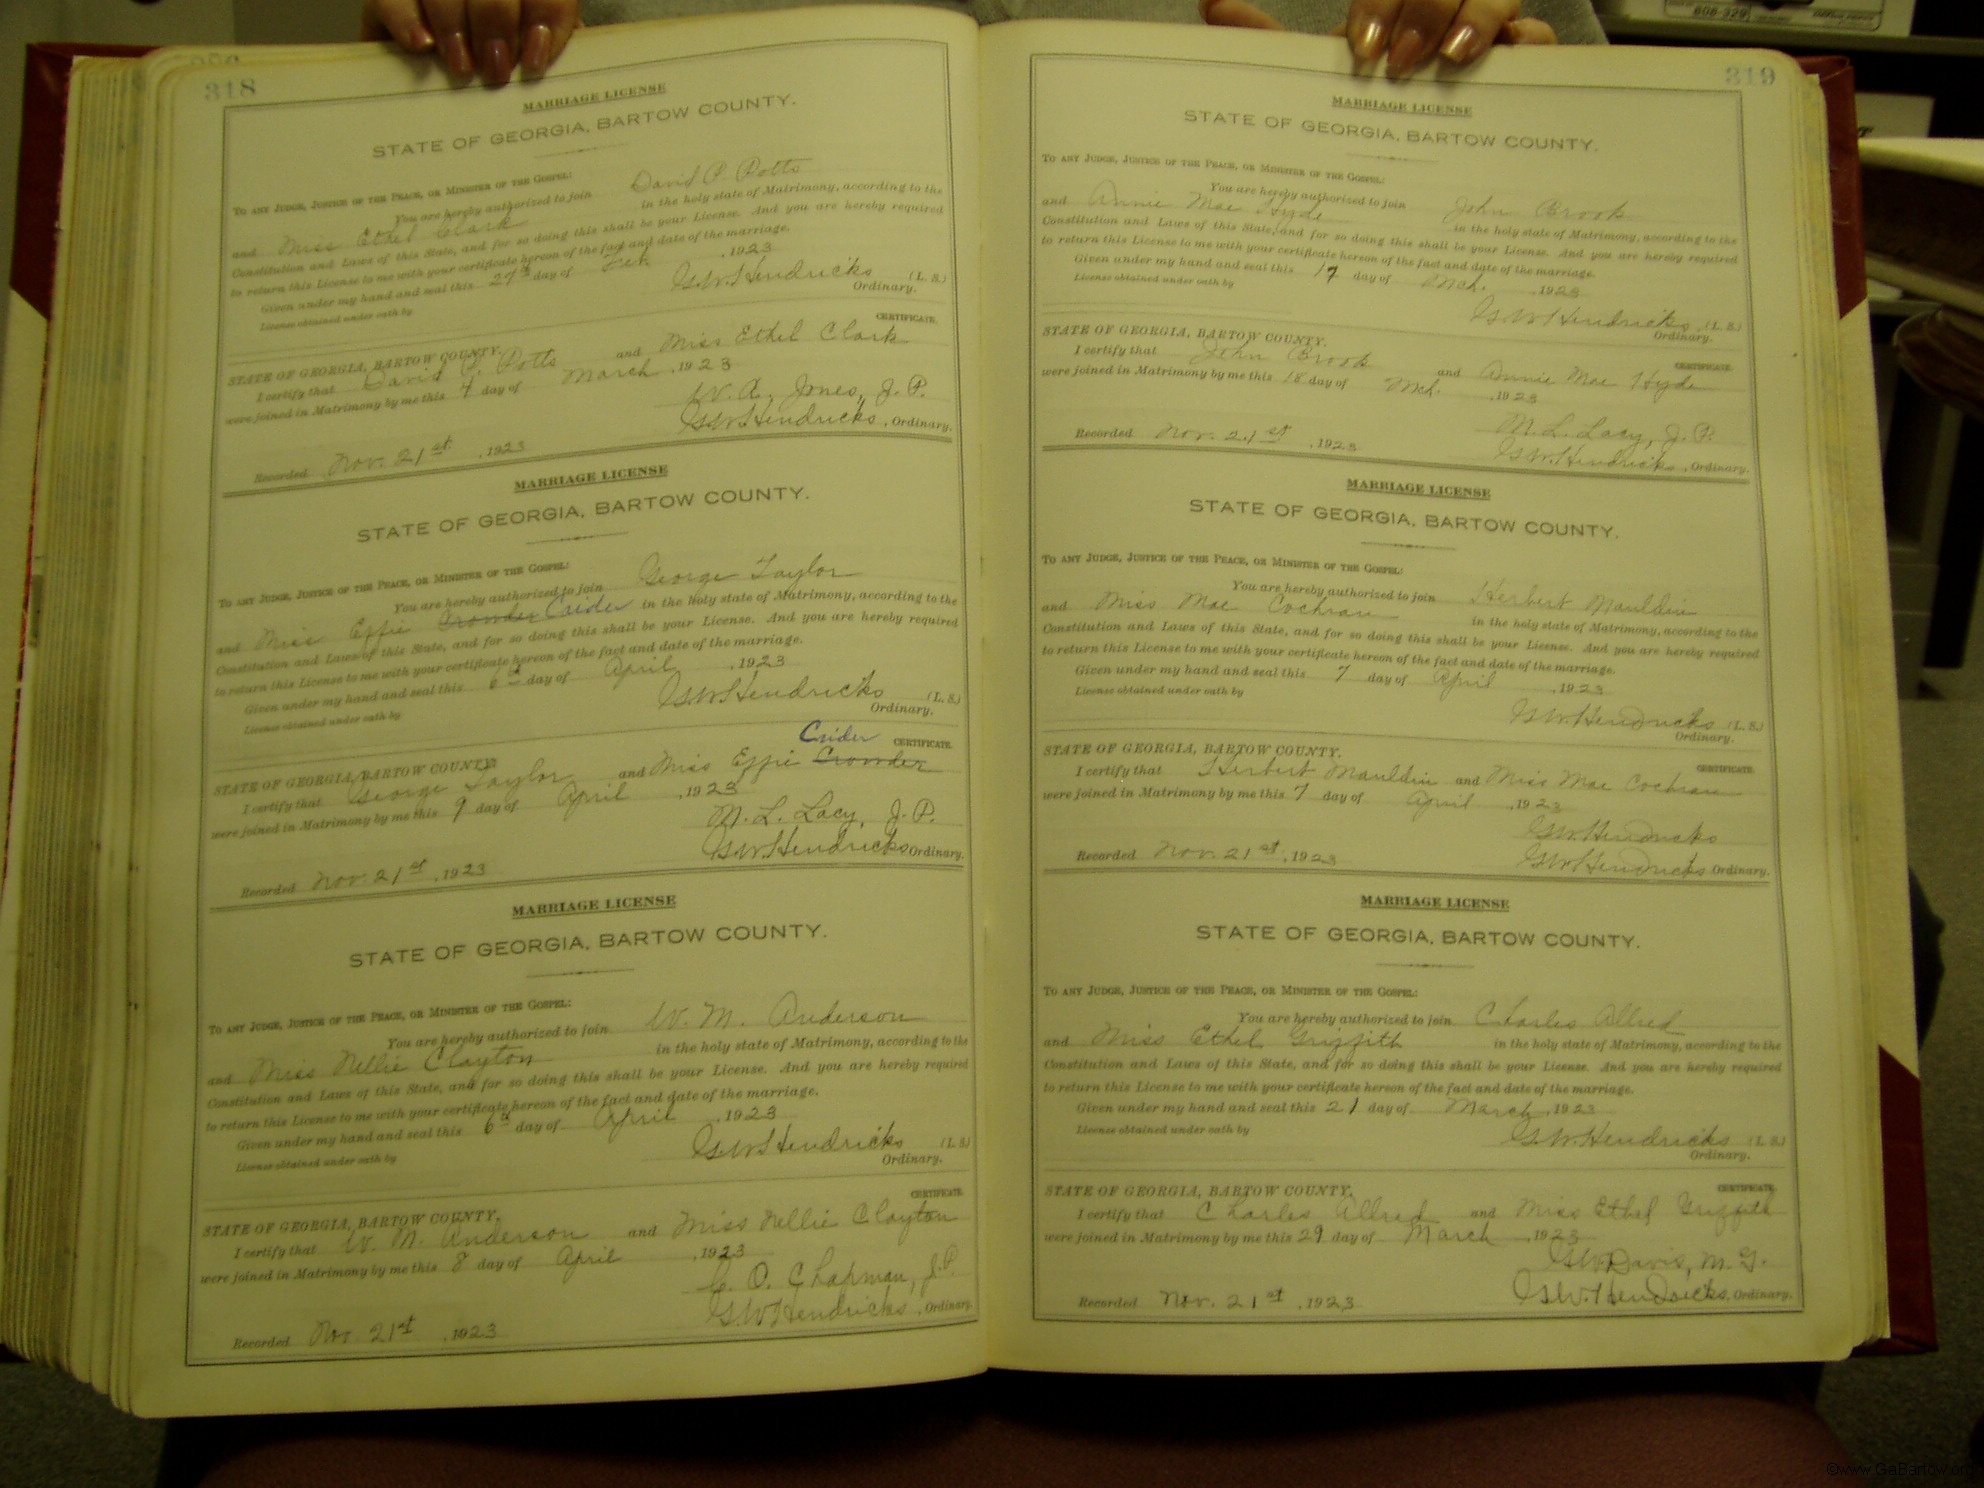 318
MARRIAGE LICENSE
STATE OF GEORGIA, BARTOW COUNTY.
TO ANY JUDGE, JUSTICE OF THE PEACE, OR MINISTER OF THE GOSPEL:
You are hereby authorized to join David P. Potts
and Miss Ethel Clark in the holy state of Matrimony, according to the
Constitution and Laws of this State, and for so doing this shall be your License. And you are hereby required
to return this License to me with your certificate hereon of the fact and date of the marriage.
Given under my hand and seal this 27th day of Feb , 1923
License obtained under oath by G.W. Hendricks (L. S.)
Ordinary.
CERTIFICATE.
STATE OF GEORGIA, BARTOW COUNTY.
I certify that David P. Potts and Miss Ethel Clark
were joined in Matrimony by me this 4 day of March , 1923
W. A. Jones, J. P.
Recorded Nov. 21st , 1923 G.W. Hendricks, Ordinary.
MARRIAGE LICENSE
STATE OF GEORGIA, BARTOW COUNTY.
TO ANY JUDGE, JUSTICE OF THE PEACE, OR MINISTER OF THE GOSPEL:
You are hereby authorized to join George Taylor
and Miss Effie Crowder Crider in the holy state of Matrimony, according to the
Constitution and Laws of this State, and for so doing this shall be your License. And you are hereby required
to return this License to me with your certificate hereon of the fact and date of the marriage.
Given under my hand and seal this 6th day of April , 1923
License obtained under oath by G.W. Hendricks (L. S.)
Ordinary.
Crider CERTIFICATE.
STATE OF GEORGIA, BARTOW COUNTY.
I certify that George Taylor and Miss Effie Crowder
were joined in Matrimony by me this 9 day of April , 1923
M. L. Lacy, J. P.
Recorded Nov. 21st , 1923 G.W. Hendricks Ordinary.
MARRIAGE LICENSE
STATE OF GEORGIA, BARTOW COUNTY.
TO ANY JUDGE, JUSTICE OF THE PEACE, OR MINISTER OF THE GOSPEL:
You are hereby authorized to join W. M. Anderson
and Miss Nellie Clayton in the holy state of Matrimony, according to the
Constitution and Laws of this State, and for so doing this shall be your License. And you are hereby required
to return this License to me with your certificate hereon of the fact and date of the marriage.
Given under my hand and seal this 6th day of April , 1923
License obtained under oath by G.W. Hendricks (L. S.)
Ordinary.
CERTIFICATE.
STATE OF GEORGIA, BARTOW COUNTY.
I certify that W. M. Anderson and Miss Nellie Clayton
were joined in Matrimony by me this 8 day of April , 1923
C. O. Chapman, J.P.
Recorded Nov. 21st , 1923 G.W. Hendricks, Ordinary.
319
MARRIAGE LICENSE
STATE OF GEORGIA, BARTOW COUNTY.
TO ANY JUDGE, JUSTICE OF THE PEACE, OR MINISTER OF THE GOSPEL:
You are hereby authorized to join John Brook
and Annie Mae Hyde in the holy state of Matrimony, according to the
Constitution and Laws of this State, and for so doing this shall be your License. And you are hereby required
to return this License to me with your certificate hereon of the fact and date of the marriage.
Given under my hand and seal this 17 day of Mch. , 1923
License obtained under oath by G.W. Hendricks (L. S.)
Ordinary.
CERTIFICATE.
STATE OF GEORGIA, BARTOW COUNTY.
I certify that John Brook and Annie Mae Hyde
were joined in Matrimony by me this 18 day of Mch. , 1923
M. L. Lacy, J. P.
Recorded Nov. 21st , 1923 G.W. Hendricks, Ordinary.
MARRIAGE LICENSE
STATE OF GEORGIA, BARTOW COUNTY.
TO ANY JUDGE, JUSTICE OF THE PEACE, OR MINISTER OF THE GOSPEL:
You are hereby authorized to join Herbert Mauldin
and Miss Mae Cochran in the holy state of Matrimony, according to the
Constitution and Laws of this State, and for so doing this shall be your License. And you are hereby required
to return this License to me with your certificate hereon of the fact and date of the marriage.
Given under my hand and seal this 7 day of April , 1923
License obtained under oath by G.W. Hendricks (L. S.)
Ordinary.
CERTIFICATE.
STATE OF GEORGIA, BARTOW COUNTY.
I certify that Herbert Mauldin and Miss Mae Cochran
were joined in Matrimony by me this 7 day of April , 1923
G.W. Hendricks
Recorded Nov. 21st , 1923 G.W. Hendricks Ordinary.
MARRIAGE LICENSE
STATE OF GEORGIA, BARTOW COUNTY.
TO ANY JUDGE, JUSTICE OF THE PEACE, OR MINISTER OF THE GOSPEL:
You are hereby authorized to join Charles Allred
and Miss Ethel Griffith in the holy state of Matrimony, according to the
Constitution and Laws of this State, and for so doing this shall be your License. And you are hereby required
to return this License to me with your certificate hereon of the fact and date of the marriage.
Given under my hand and seal this 21 day of March , 1923
License obtained under oath by G.W. Hendricks (L. S.)
Ordinary.
CERTIFICATE.
STATE OF GEORGIA, BARTOW COUNTY.
I certify that Charles Allred and Miss Ethel Griffith
were joined in Matrimony by me this 29 day of March , 1923
G.W. Davis, M. G.
Recorded Nov. 21st , 1923 G.W. Hendricks, Ordinary.
808-329
©www.GaBartow.org